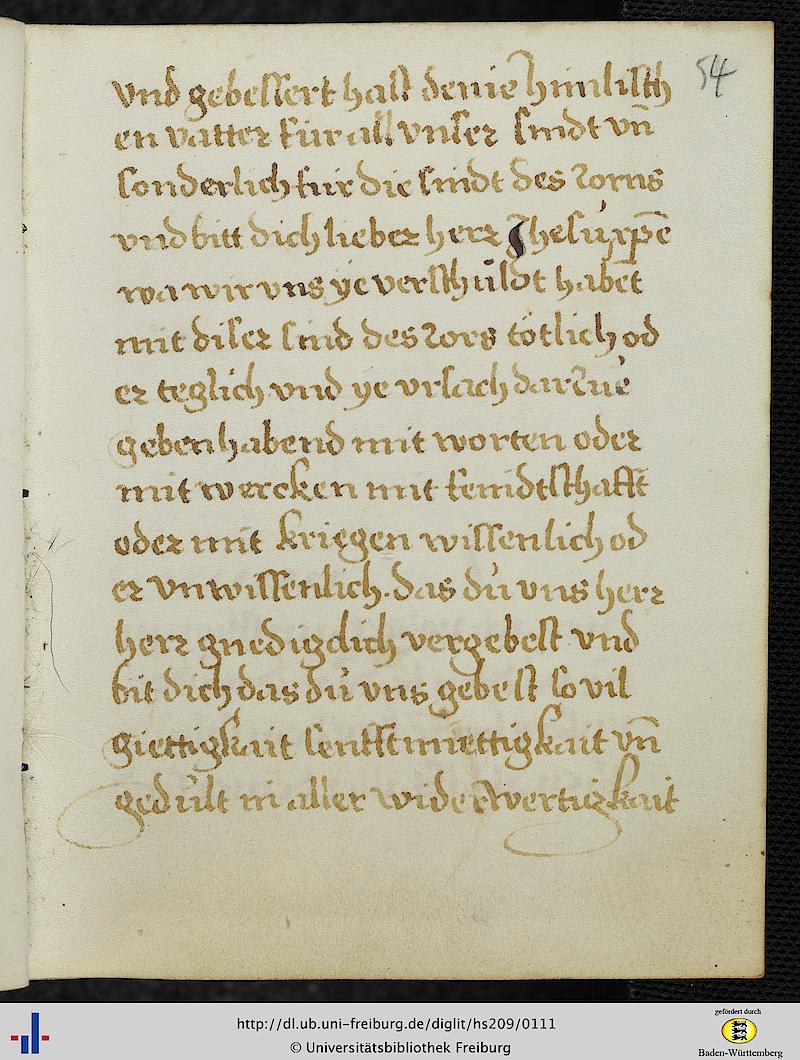 54
vnd gebessert hast denē himlisch
en vatter für all vnser sindt vn̄
sonderlich für die sindt des zorns
vnd bitt dich lieber herr Jhesu xpē
wa wir vns ye verschuldt habēt
mit diser sind des zors tötlich od
er teglich vnd ye vrsach darzue
geben habend mit worten oder
mit wercken mit feindtschafft
oder mit kriegen wissenlich od
er vnwissenlich. das du vns herr
herr gnedigclich vergebest vnd
bit dich das du vns gebest so vil
giettigkait senfftmiettigkait vn̄
gedult in aller widerwertigkait
http://dl.ub.uni-freiburg.de/diglit/hs209/0111
© Universitätsbibliothek Freiburg
gefördert durch
Baden-Württemberg